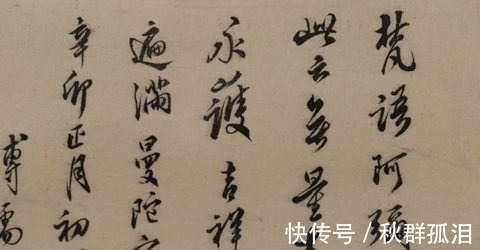 梵語阿
此云無量
永護吉祥
遍滿曼陀
辛卯正月初
溥儒
快传号 / 秋群孤泪